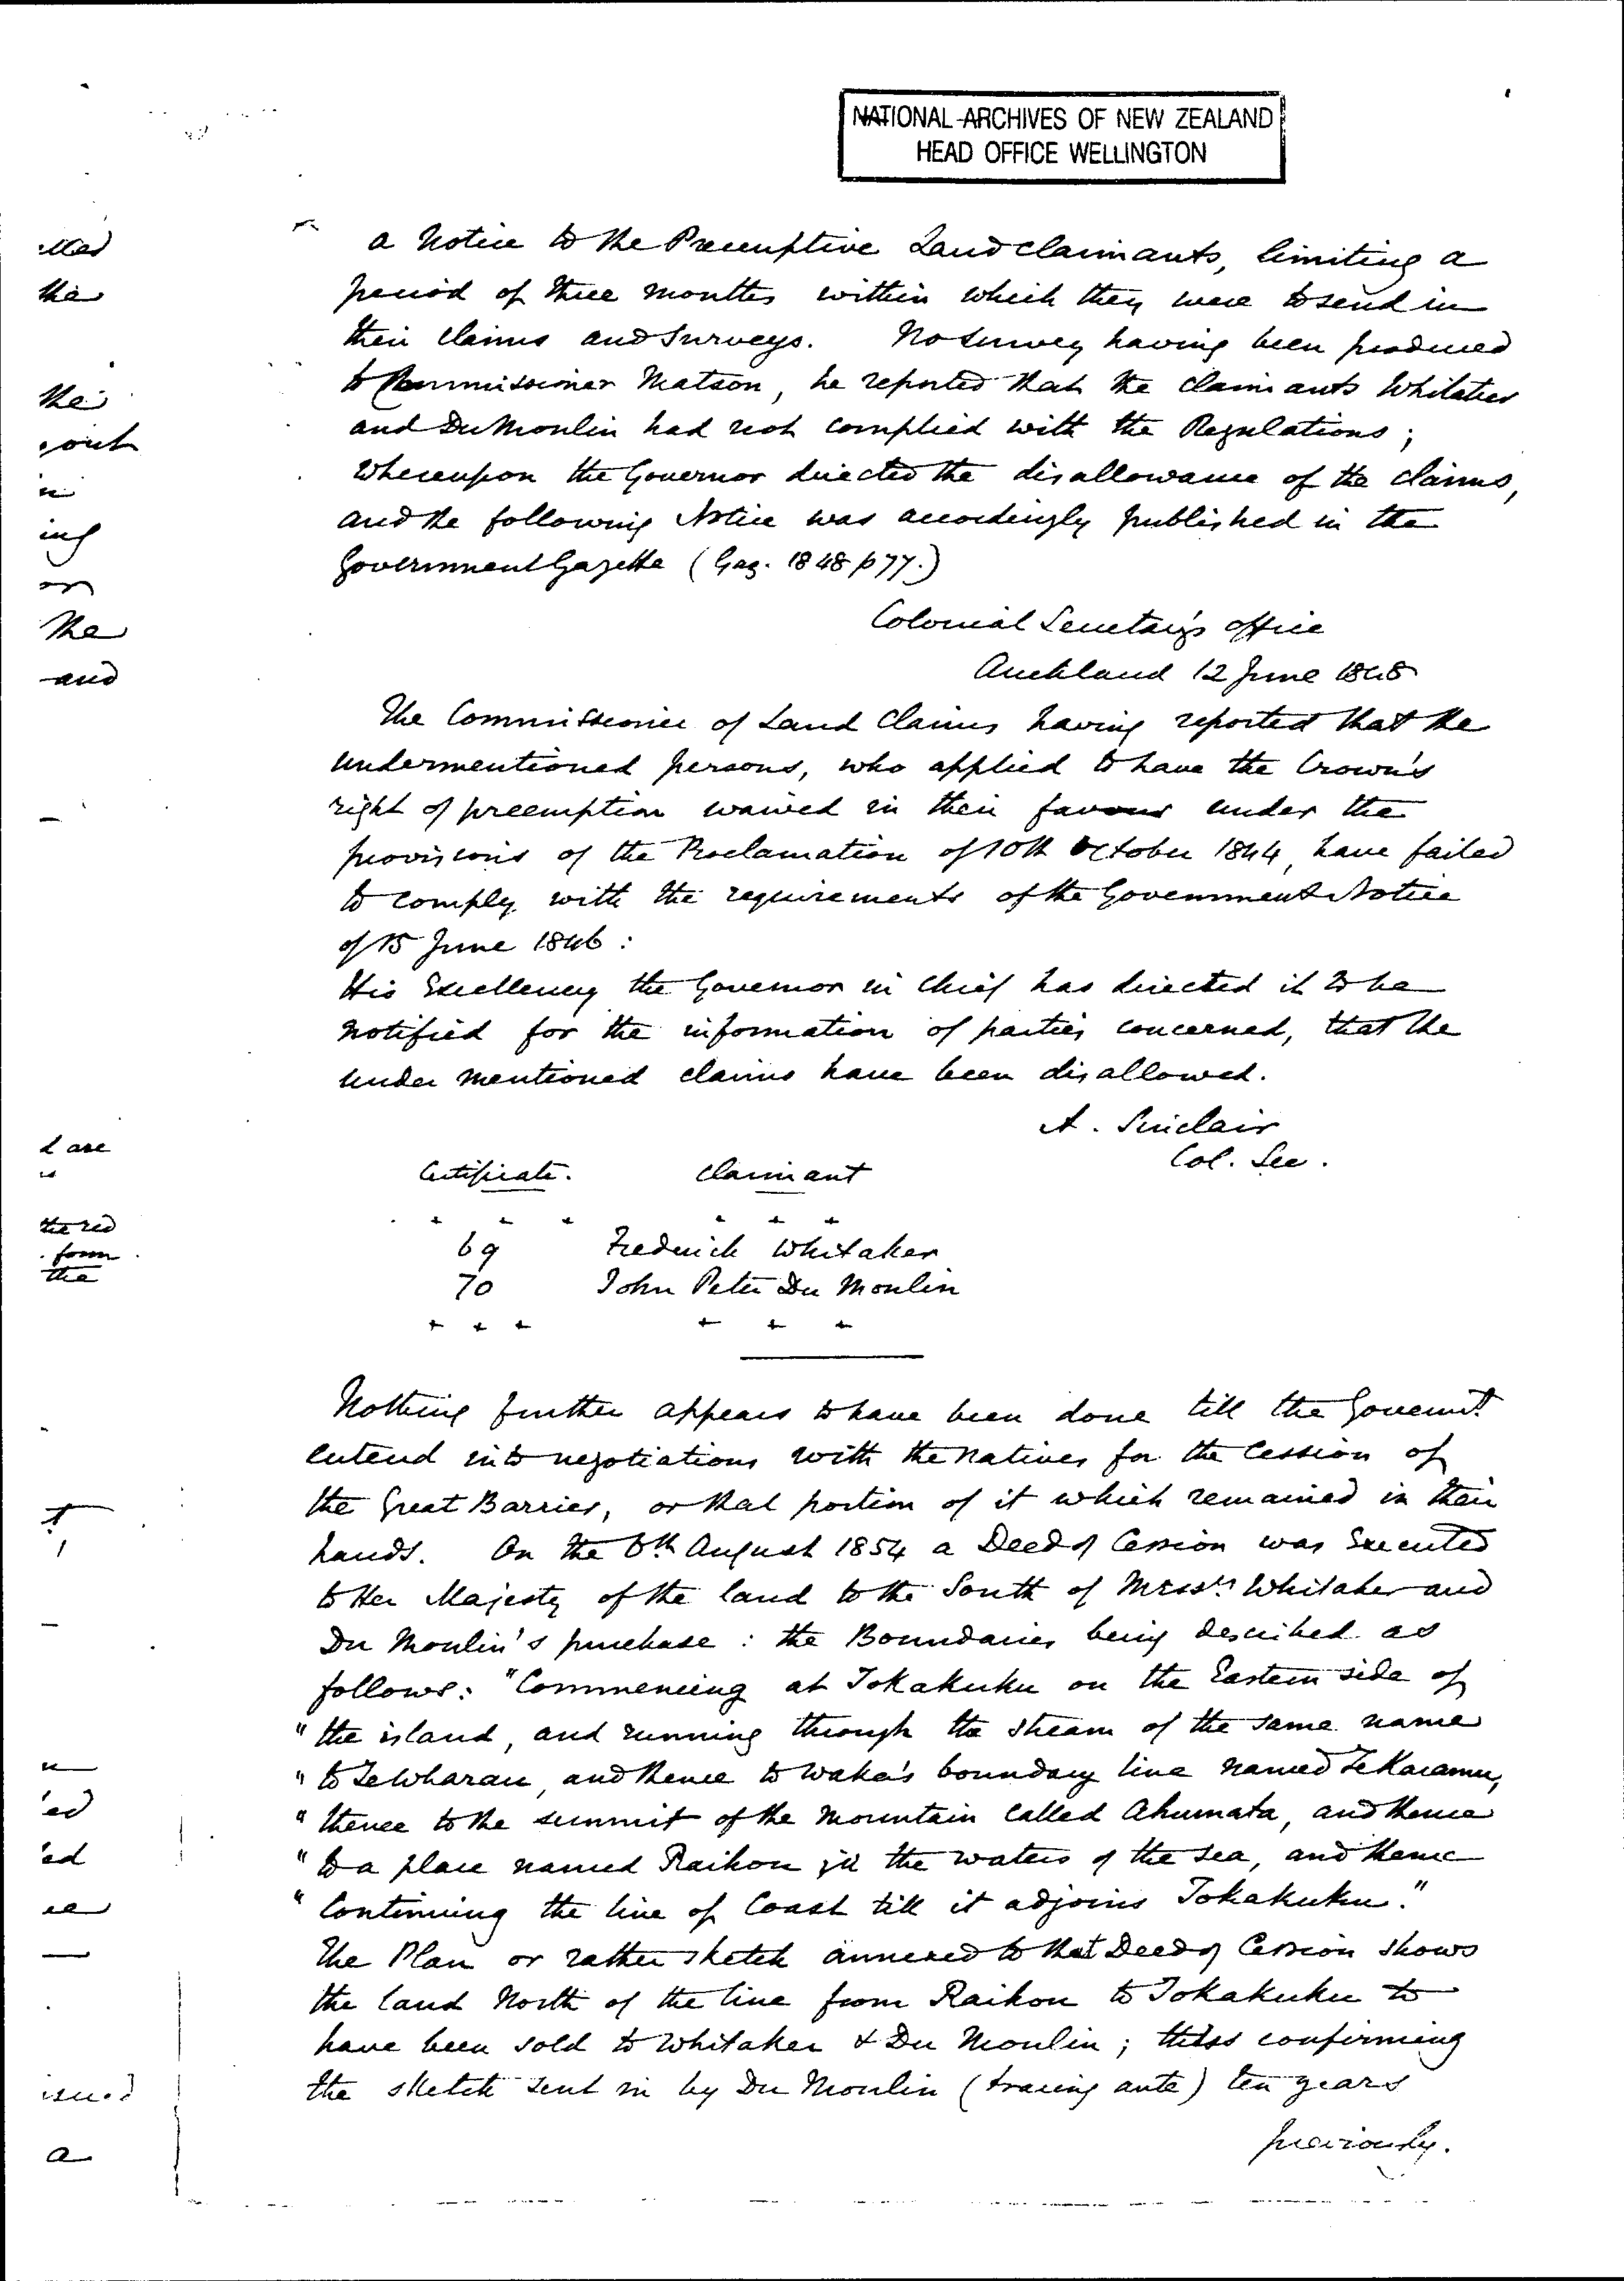 NATIONAL ARCHIVES OF NEW ZEALAND
HEAD OFFICE WELLINGTON
a Notice to the Preemptive Land claimants, limiting a
period of three months within which they were to send in
their claims and surveys. No survey having been produced
to Commissioner Matson, he reported that the claimants Whitaker
and Du Moulin had not complied with the Regulations;
Whereupon the Governor directed the disallowance of the claims,
and the following Notice was accordingly published in the
Government Gazette (Gaz. 1848 p 77.)
Colonial Secretary's office
Auckland 12 June 1848
The Commissioner of Land Claims having reported that the
undermentioned persons, who applied to have the Crown's
right of preemption waived in their favour under the
provisions of the Proclamation of 10th October 1844, have failed
to comply with the requirements of the Government Notice
of 15 June 1846:
His Excellency the Governor in Chief has directed it to be
notified for the information of parties concerned, that the
under mentioned claims have been disallowed.
A. Sinclair
Col. Sec.
Certificate. Claimant
+ + + + + +
69 Frederick Whitaker
70 John Peter Du Moulin
+ + + + + +
Nothing further appears to have been done till the Governmt.
entered into negotiations with the natives for the Cession of
the Great Barrier, or that portion of it which remained in their
hands. On the 8th August 1854 a Deed of Cession was Executed
to Her Majesty of the land to the South of Messrs Whitaker and
Du Moulin's purchase: the Boundaries being described as
follows: "Commencing at Tokakuku on the Eastern side of
"the island, and running through the stream of the same name
"to Te Wharau, and thence to Waka's boundary line named Te Karamu,
"thence to the summit of the mountain called Ahumata, and thence
"to a place named Raikou in the waters of the sea, and thence
"Continuing the line of Coast till it adjoins Tokakuku."
The Plan or rather sketch annexed to that Deed of Cession shows
the land North of the line from Raikou to Tokakuku to
have been sold to Whitaker & Du Moulin; thus confirming
the sketch sent in by Du Moulin (tracing ante) ten years
previously.
the
the
in
ing
or
the
and
d are
is
the red
form
the
ed
ed
ee
issued
a